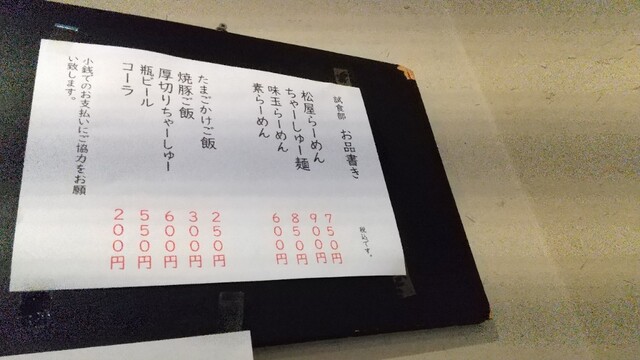 試食部 お品書き
松屋らーめん
ちゃーしゅー麺
味玉らーめん
素らーめん
たまごかけご飯
焼豚ご飯
厚切りちゃーしゅー
瓶ビール
コーラ
小銭でのお支払いにご協力をお願
い致します。
税込です。
750円
900円
850円
600円
250円
300円
600円
550円
200円